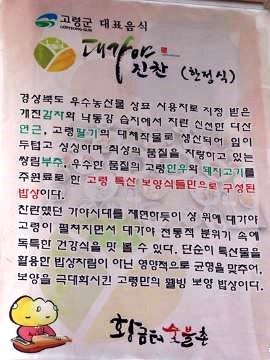 고령군 대표음식
대가야
진찬 (한정식)
경상북도 우수농산물 상표 사용자로 지정 받은
개진감자와 낙동강 습지에서 자란 신선한 다산
연근, 고령딸기의 대체작물로 생산되어 잎이
두텁고 싱싱하며 최상의 품질을 자랑하고 있는
쌍림부추, 우수한 품질의 고령한우와 돼지고기를
주원료로 한 고령 특산 보양식들만으로 구성된
밥상이다.
찬란했던 가야시대를 재현하듯이 상 위에 대가야
고령이 펼쳐지면서 대가야 전통적 분위기 속에
독특한 건강식을 맛 볼 수 있다. 단순이 특산물을
활용한 밥상차림이 아닌 영양적으로 균형을 맞추어,
보양을 극대화시킨 고령만의 웰빙 보양 밥상이다.
황금터숯불촌